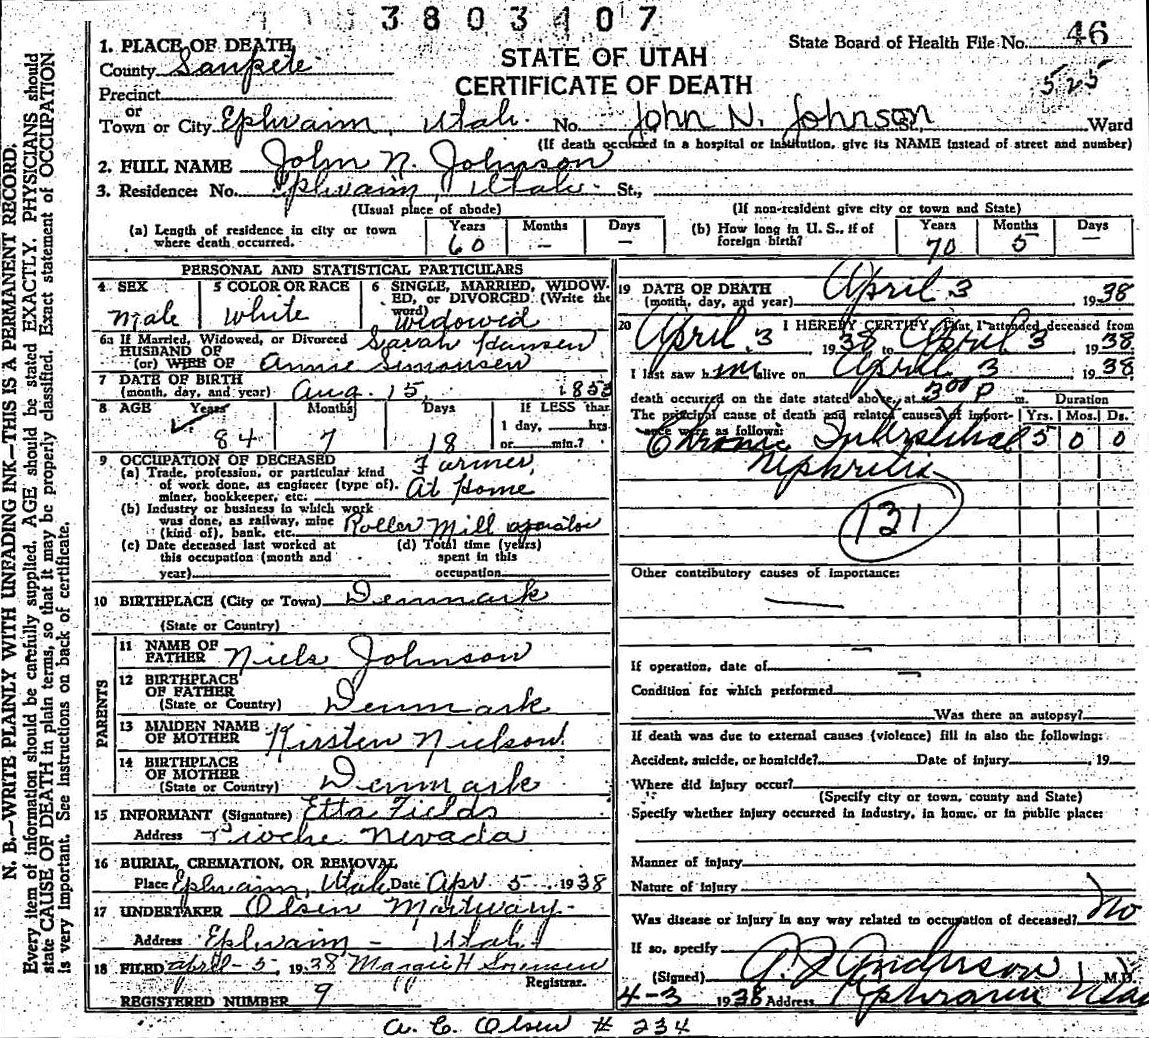 3803107
1. PLACE OF DEATH
County Sanpete
Precinct
or
Town or City Ephraim, Utah. No. John N. Johnson St., Ward
(If death occurred in a hospital or institution, give its NAME instead of street and number)
STATE OF UTAH
CERTIFICATE OF DEATH
State Board of Health File No. 46
525
2. FULL NAME John N. Johnson
3. Residence: No. Ephraim, Utah. St.,
(Usual place of abode) (If non-resident give city or town and State)
(a) Length of residence in city or town where death occurred. Years 60 Months - Days -
(b) How long in U. S., if of foreign birth? Years 70 Months 5 Days -
PERSONAL AND STATISTICAL PARTICULARS
4 SEX Male
5 COLOR OR RACE White
6 SINGLE, MARRIED, WIDOWED, or DIVORCED (Write the word) Widowed
6a If Married, Widowed, or Divorced Sarah Hansen
HUSBAND OF
(or) WIFE OF Annie Simonsen
7 DATE OF BIRTH
(month, day, and year) Aug. 15, 1853
8 AGE Years 84 Months 7 Days 18
If LESS than
1 day, hrs.
or min.?
9 OCCUPATION OF DECEASED
(a) Trade, profession, or particular kind Farmer,
of work done, as engineer (type of),
miner, bookkeeper, etc. At Home
(b) Industry or business in which work
was done, as railway, mine
(kind of), bank, etc. Roller Mill operator
(c) Date deceased last worked at
this occupation (month and
year)
(d) Total time (years)
spent in this
occupation
10 BIRTHPLACE (City or Town) Denmark
(State or Country)
PARENTS
11 NAME OF
FATHER Niels Johnson
12 BIRTHPLACE
OF FATHER
(State or Country) Denmark
13 MAIDEN NAME
OF MOTHER Kirsten Nielson
14 BIRTHPLACE
OF MOTHER
(State or Country) Denmark
15 INFORMANT (Signature) Etta Fields
Address Pioche Nevada
16 BURIAL, CREMATION, OR REMOVAL
Place Ephraim, Utah Date Apr 5 1938
17 UNDERTAKER Olsen Mortuary-
Address Ephraim - Utah.
18 FILED April-5, 1938 Margie H Sorensen
Registrar.
REGISTERED NUMBER 9
19 DATE OF DEATH
(month, day, and year) April 3 1938
20 I HEREBY CERTIFY, That I attended deceased from
April 3 1938 to April 3 1938
I last saw him alive on April 3 1938
death occurred on the date stated above, at 300 P m. Duration
The principal cause of death and related causes of import- Yrs. Mos. Ds.
ance were as follows:
Chronic Interstitial 5 0 0
Nephritis
131
Other contributory causes of importance:
If operation, date of
Condition for which performed
Was there an autopsy?
If death was due to external causes (violence) fill in also the following:
Accident, suicide, or homicide? Date of injury , 19
Where did injury occur?
(Specify city or town, county and State)
Specify whether injury occurred in industry, in home, or in public place:
Manner of injury
Nature of injury
Was disease or injury in any way related to occupation of deceased? No
If so, specify
(Signed) A J Anderson M.D.
4-3 1938 Address Ephraim Utah
A. C. Olsen # 234
N. B.—WRITE PLAINLY WITH UNFADING INK—THIS IS A PERMANENT RECORD.
Every item of information should be carefully supplied. AGE should be stated EXACTLY. PHYSICIANS should
state CAUSE OF DEATH in plain terms, so that it may be properly classified. Exact statement of OCCUPATION
is very important. See instructions on back of certificate.